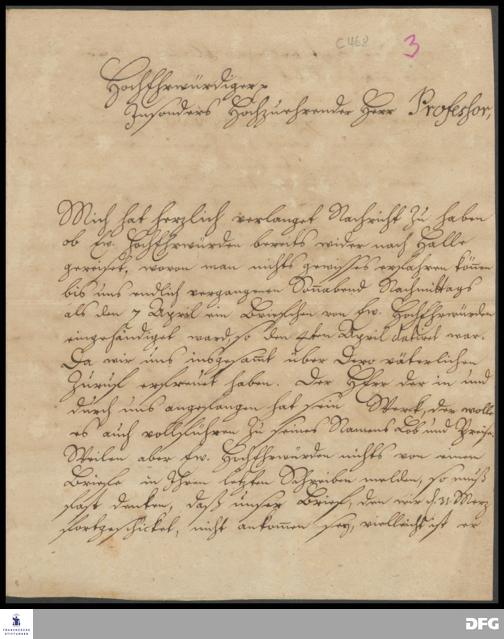 C 468
3
HochEhrwürdiger
Insonders Hochzuehrender Herr Professor,
Mich hat herzlich verlanget Nachricht zu haben
ob Ew. HochEhrwürden bereits wider nach Halle
gereiset, wovon man nichts gewisses erfahren können
bis uns endlich vergangenen Sonnabend Nachmittags
als den 7 April ein Briefchen von Ew. HochEhrwürden
eingehändiget ward, so den 4ten April datirt war.
Da wir uns ingesammt über Dero väterlichen
Zuruf erfreuet haben. Der HErr der in und
durch uns angefangen hat sein Werck, der wolle
es auch vollführen zu seines Namens Lob und Preise.
Weilen aber Ew. HochEhrwürden nichts von einem
Briefe in Ihrem letzten Schreiben melden, so muß
fast dencken, daß unser Brief, den wir d. 31 Merz
fortgeschicket, nicht ankommen sey, vielleicht ist er
FRANCKESCHE
STIFTUNGEN
DFG